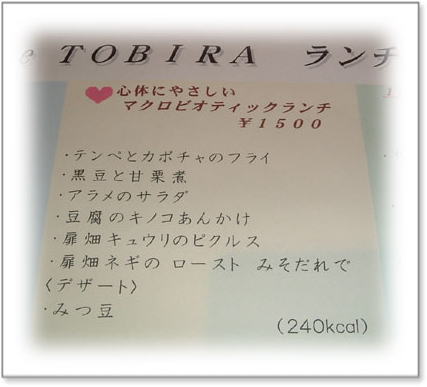 TOBIRA ランチ
心体にやさしい
マクロビオティックランチ
￥1500
・テンペとカボチャのフライ
・黒豆と甘栗煮
・アラメのサラダ
・豆腐のキノコあんかけ
・扉畑キュウリのピクルス
・扉畑ネギの ロースト みそだれで
〈デザート〉
・みつ豆
(240kcal)